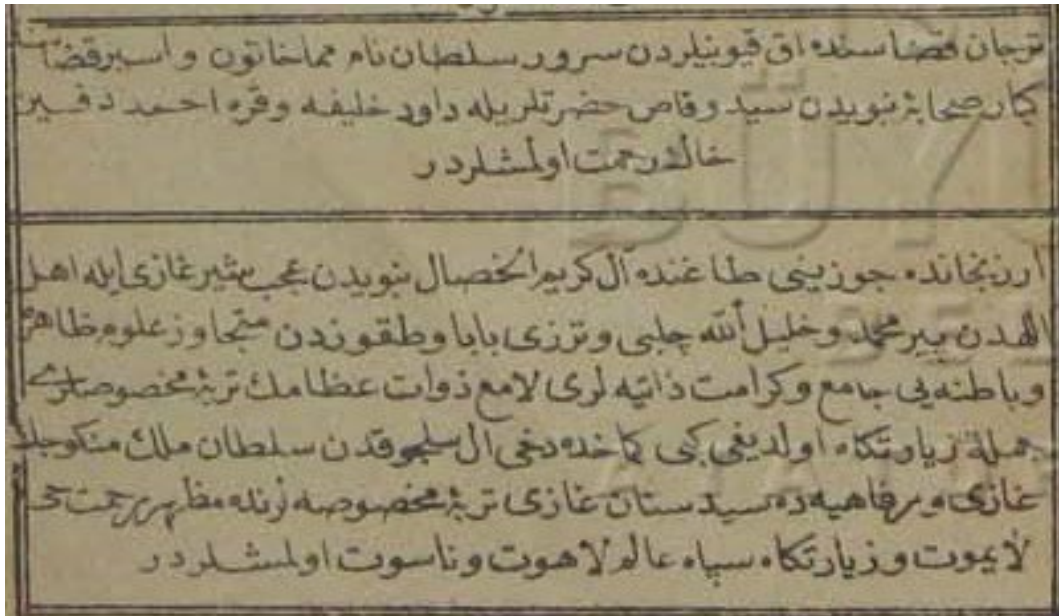 ترجان قضاسنده اق قیونیلردن سرور سلطان نام مماخاتون و اسبر قضاسنده
کبار صحابۀ نبویدن سید وقاص حضرتلریله داود خلیفه وقره احمد دفین
خاك رحمت اولمشلردر
ارزنجانده جوزینی طاغنده آل کریم الخصال نبویدن عجب شیر غازی ایله اهل
اللهدن پیر محمد وخلیل الله چلبی وترزی بابا وطقوزدن متجاوز علوم ظاهره
وباطنه یی جامع وکرامت ذاتیه لری لامع ذوات عظامك تربۀ مخصوصه لری
جملۀ زیارتکاه اولدیغی کبی کماخده دخی ال سلجوقدن سلطان ملك منکوجك
غازی ورفاهیه ده سیدستان غازی تربۀ مخصوصه لرنده مظهر رحمت حی
لایموت وزیارتکاه سپاه عالم لاهوت وناسوت اولمشلردر